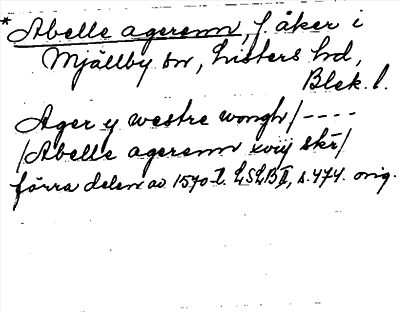 * Abelle agerenn, f. åker i
Mjällby sn, Listers hd,
Blek. l.
Ager y westre wongh /----
/Abelle agerenn xviij skr/
förra delen av 1570-t. LSLB II, s. 474. orig.